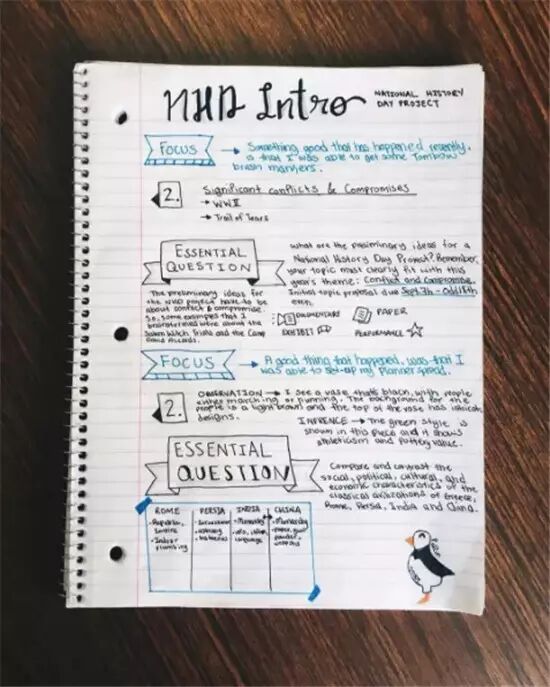 NHD Intro
NATIONAL HISTORY
DAY PROJECT
FOCUS
→ Something good that has happened recently,
is that I was able to get some Tombow
brush markers.
2.
Significant Conflicts & Compromises
→ WWII
→ Trail of Tears
ESSENTIAL
QUESTION
What are the preliminary ideas for a
National History Day Project? Remember,
your topic must clearly fit with this
year's theme: Conflict and Compromise.
Initial topic proposal due Sept 7th - Odd/8th
even.
The preliminary ideas for
the NHD project have to be
about conflict & compromise.
So, some examples that I
brainstormed were about the
Salem Witch Trials and the Camp
David Accords.
DOCUMENTARY
PAPER
EXHIBIT
PERFORMANCE
FOCUS
→ A good thing that happened, was that I
was able to set-up my planner spread.
2.
OBSERVATION → I see a vase that's black, with people
either marching or running. The background for the
people is a light brown and the top of the vase has
designs.
INFRENCE → The green style is
shown in this piece and it shows
athleticism and pottery value.
ESSENTIAL
QUESTION
Compare and contrast the
social, political, cultural, and
economic characteristics of the
classical civilizations of Greece,
Rome, Persia, India and China.
ROME
PERSIA
INDIA
CHINA
- Republic,
- Indoor
plumbing
language
powder